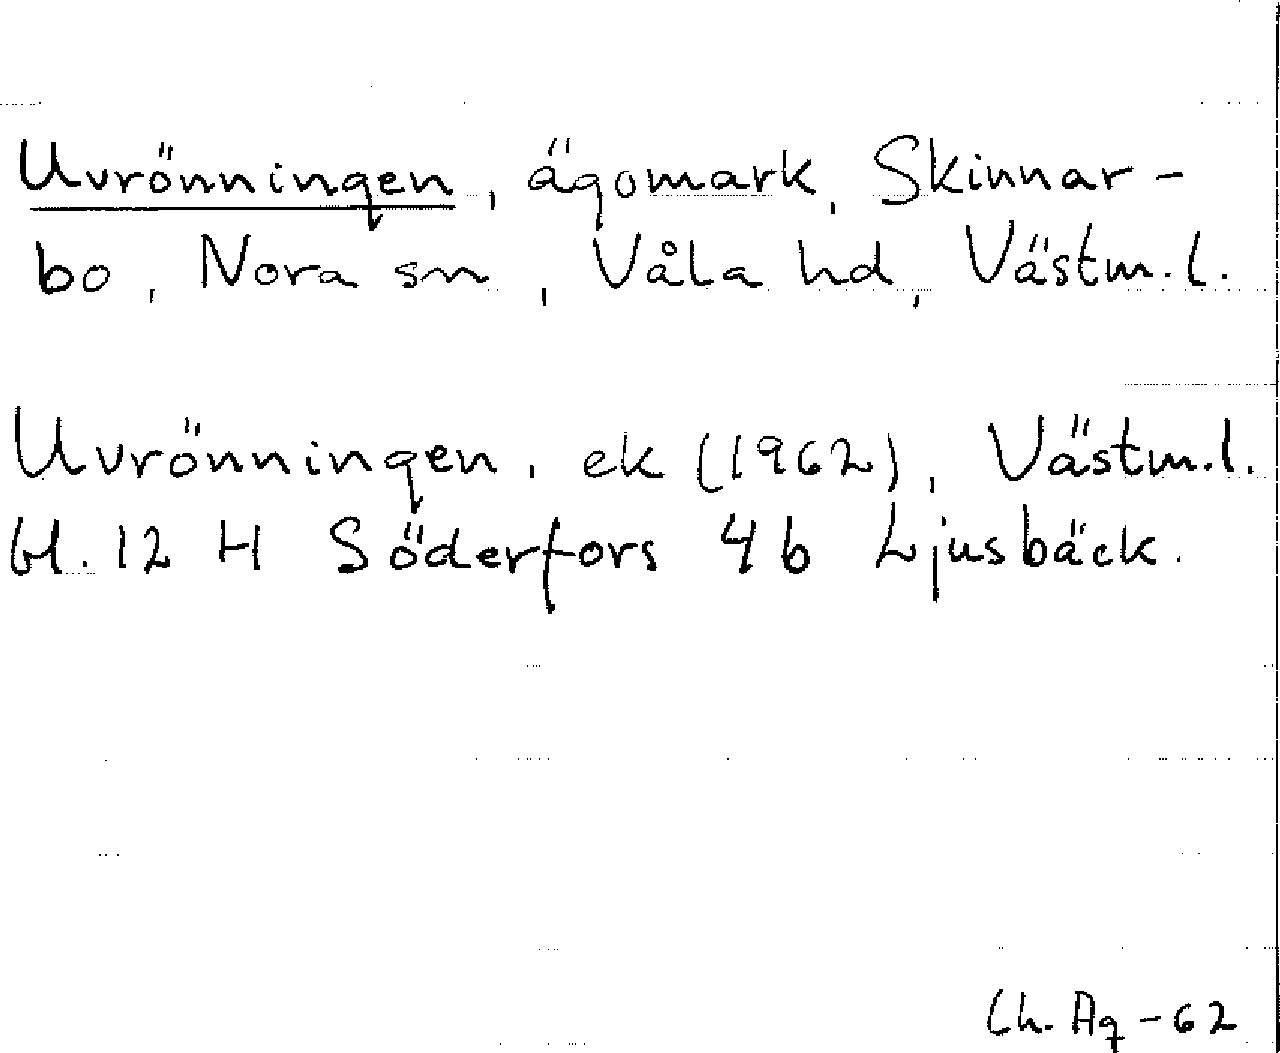 Uvrönningen, ägomark, Skinnar-
bo, Nora sn, Våla hd, Västm.l.
Uvrönningen, ek (1962), Västm.l.
bl. 12 H Söderfors 4 b Ljusbäck.
Ch. Ag -62